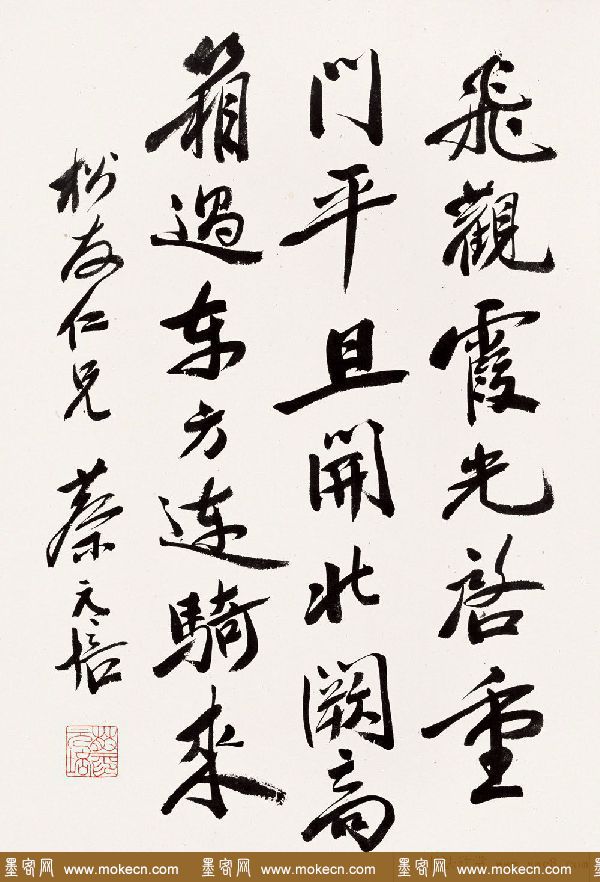 飛觀霞光啓重
門平旦開北闕高
箱過东方連騎來
松友仁兄 蔡元培
墨客网 www.mokecn.com 墨客网 www.mokecn.com 墨客网 www.mokecn.com